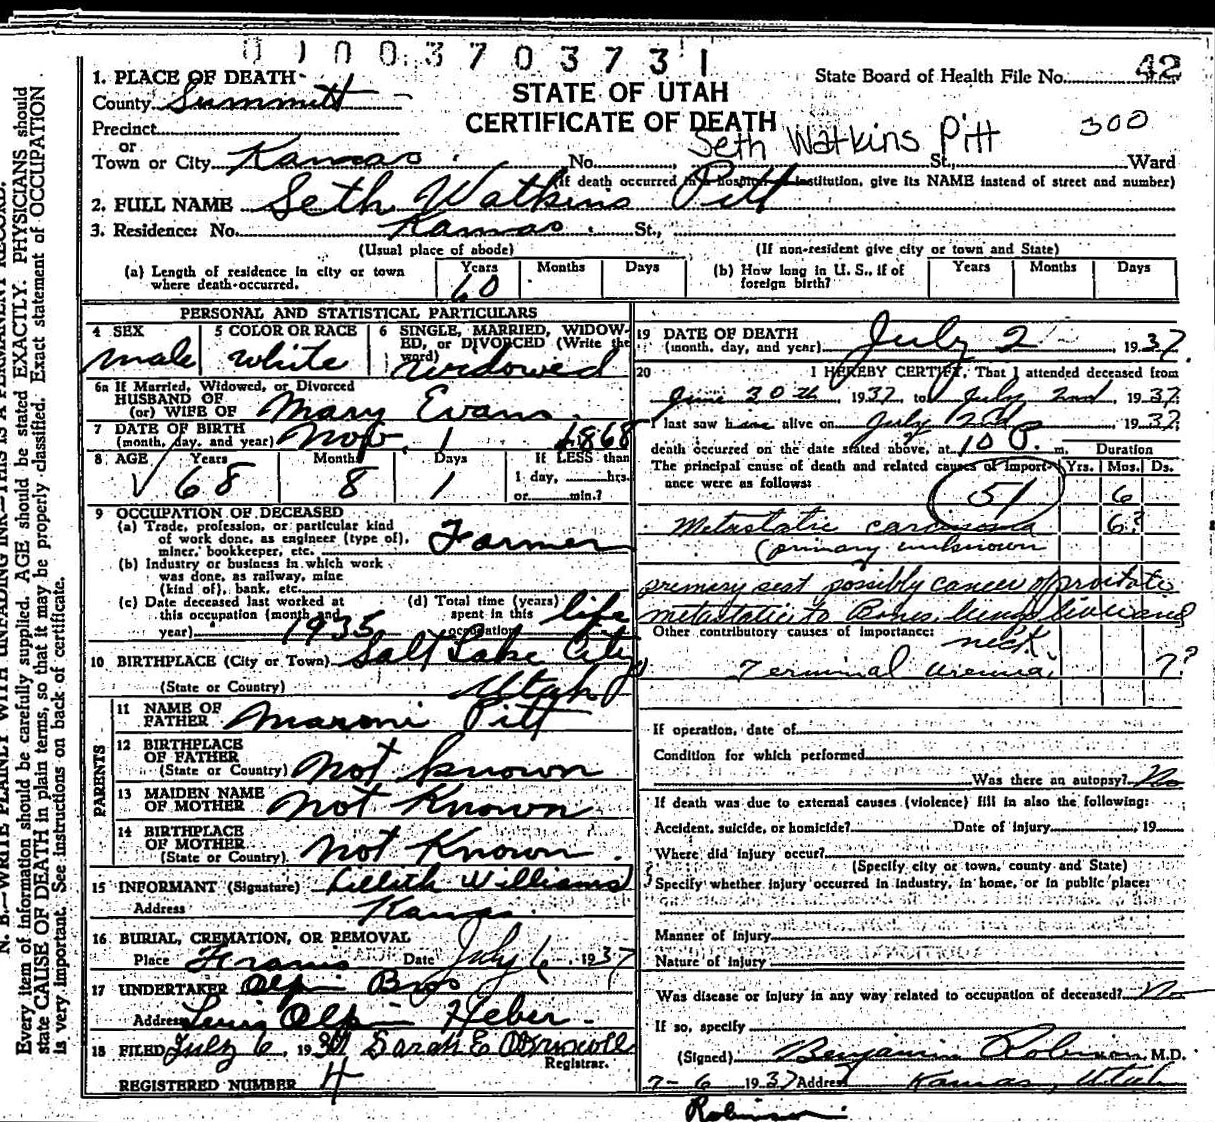 01003703731
State Board of Health File No. 42
1. PLACE OF DEATH
STATE OF UTAH
County Summitt
CERTIFICATE OF DEATH
Precinct
Seth Watkins Pitt 300
or
Town or City Kamas No. St., Ward
(If death occurred in a hospital or institution, give its NAME instead of street and number)
2. FULL NAME Seth Watkins Pitt
3. Residence: No. Kamas St.,
(Usual place of abode) (If non-resident give city or town and State)
(a) Length of residence in city or town where death occurred. Years 60 Months Days
(b) How long in U. S., if of foreign birth? Years Months Days
PERSONAL AND STATISTICAL PARTICULARS
4 SEX male
5 COLOR OR RACE white
6 SINGLE, MARRIED, WIDOWED, OR DIVORCED (Write the word) widowed
6a If Married, Widowed, or Divorced
HUSBAND OF
(or) WIFE OF Mary Evans
7 DATE OF BIRTH
(month, day, and year) Nov. 1 1868
8 AGE Years 68 Months 8 Days 1
If LESS than
1 day, hrs.
or min.?
9 OCCUPATION OF DECEASED
(a) Trade, profession, or particular kind
of work done, as engineer (type of),
miner, bookkeeper, etc. Farmer
(b) Industry or business in which work
was done, as railway, mine
(kind of), bank, etc.
(c) Date deceased last worked at
this occupation (month and
year) 1935
(d) Total time (years)
spent in this
occupation life
10 BIRTHPLACE (City or Town) Salt Lake City
(State or Country) Utah
PARENTS
11 NAME OF
FATHER Maroni Pitt
12 BIRTHPLACE
OF FATHER
(State or Country) Not known
13 MAIDEN NAME
OF MOTHER Not Known
14 BIRTHPLACE
OF MOTHER
(State or Country) Not Known.
15 INFORMANT (Signature) Williams
Address Kamas.
16 BURIAL, CREMATION, OR REMOVAL
Place Date July 6, 1937
17 UNDERTAKER Olpin Bros
Address Olpin Heber
18 FILED July 6, 1937 Sarah E
Registrar.
REGISTERED NUMBER 4
19 DATE OF DEATH
(month, day, and year) July 2 , 1937
20 I HEREBY CERTIFY, That I attended deceased from
June 20th, 1937, to July 2nd, 1937.
I last saw him alive on July 2nd, 1937
death occurred on the date stated above, at 10 P. m. Duration
The principal cause of death and related causes of importance were as follows: Yrs. Mos. Ds.
51 6
Metastatic carcinoma 6?
(primary unknown
primary seat possibly cancer of prostate
metastatic to Bones, lungs liver and
Other contributory causes of importance: neck.
Terminal uremia 7?
If operation, date of
Condition for which performed
Was there an autopsy? No
If death was due to external causes (violence) fill in also the following:
Accident, suicide, or homicide? Date of injury , 19
Where did injury occur?
(Specify city or town, county and State)
Specify whether injury occurred in industry, in home, or in public place:
Manner of injury
Nature of injury
Was disease or injury in any way related to occupation of deceased? No
If so, specify
(Signed) Benjamin Robinson, M.D.
7-6 1937 Address Kamas, Utah
Robinson
N. B.—WRITE PLAINLY WITH UNFADING INK—THIS IS A PERMANENT RECORD.
Every item of information should be carefully supplied. AGE should be stated EXACTLY. PHYSICIANS should
state CAUSE OF DEATH in plain terms, so that it may be properly classified. Exact statement of OCCUPATION
is very important. See instructions on back of certificate.